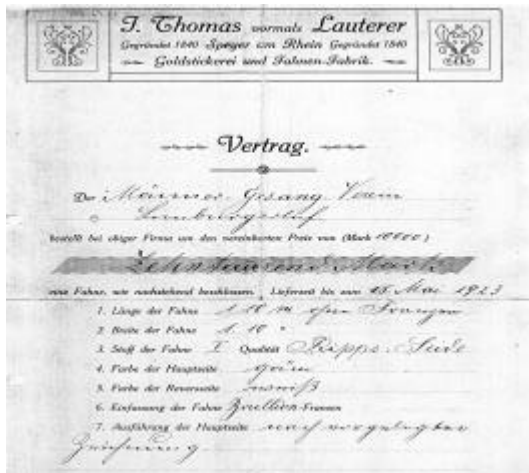 J. Thomas vormals Lauterer
Gegründet 1840 Speyer am Rhein Gegründet 1840
Goldstickerei und Fahnen-Fabrik.
Vertrag.
Der Männer-Gesang-Verein
Limburgerhof
bestellt bei obiger Firma um den vereinbarten Preis von (Mark 10000)
Zehntausend Mark
eine Fahne, wie nachstehend beschlossen. Lieferzeit bis zum 15 Mai 1923
1. Länge der Fahne 1.10 m ohne Franzen
2. Breite der Fahne 1.10 "
3. Stoff der Fahne I Qualität Ripps-Seide
4. Farbe der Hauptseite grün
5. Farbe der Reversseite weiß
6. Einfassung der Fahne Bouillon-Fransen
7. Ausführung der Hauptseite nach vorgelegter
Zeichnung